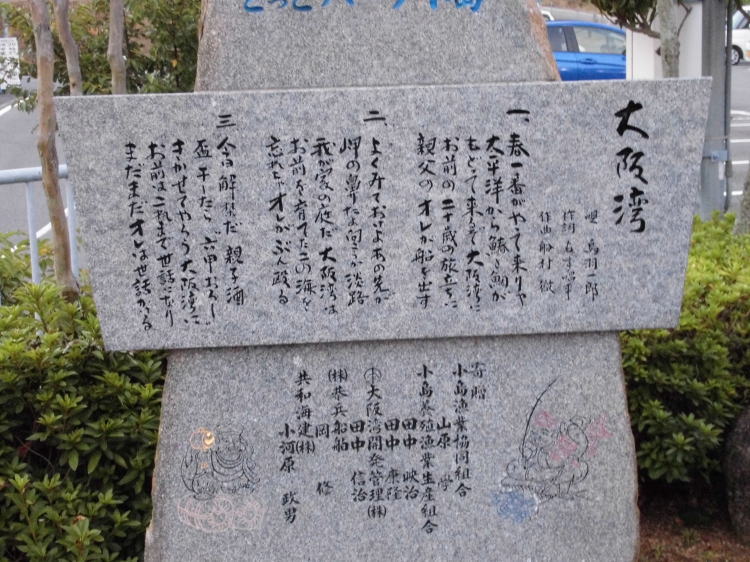 とっとパーク小島
大阪湾
唄 鳥羽一郎
作詞
作曲 船村 徹
一、春一番がやって来りゃ
太平洋から鰆も鯛が
もどって来るぞ大阪湾に
お前の二十歳の旅立ちに
親父のオレが船を出す
二、よくみておいよあの先が
岬の鼻だ 淡路
我が家の庭だ大阪湾は
お前を育てたこの海を
忘れちゃオレがぶん殴る
三 今日解禁だ 親子酒
盃干したら“六甲おろし”
きかせてやろう大阪湾に
お前はこれまで世話になり
まだまだオレは世話かける
寄贈
小島漁業協同組合
山原 学
小島養殖漁業生産組合
田中 政治
田中 康隆
大阪湾開発管理(株)
田中 信治
(株)恭兵船舶
岡 修
共和海建(株)
小河原 政男